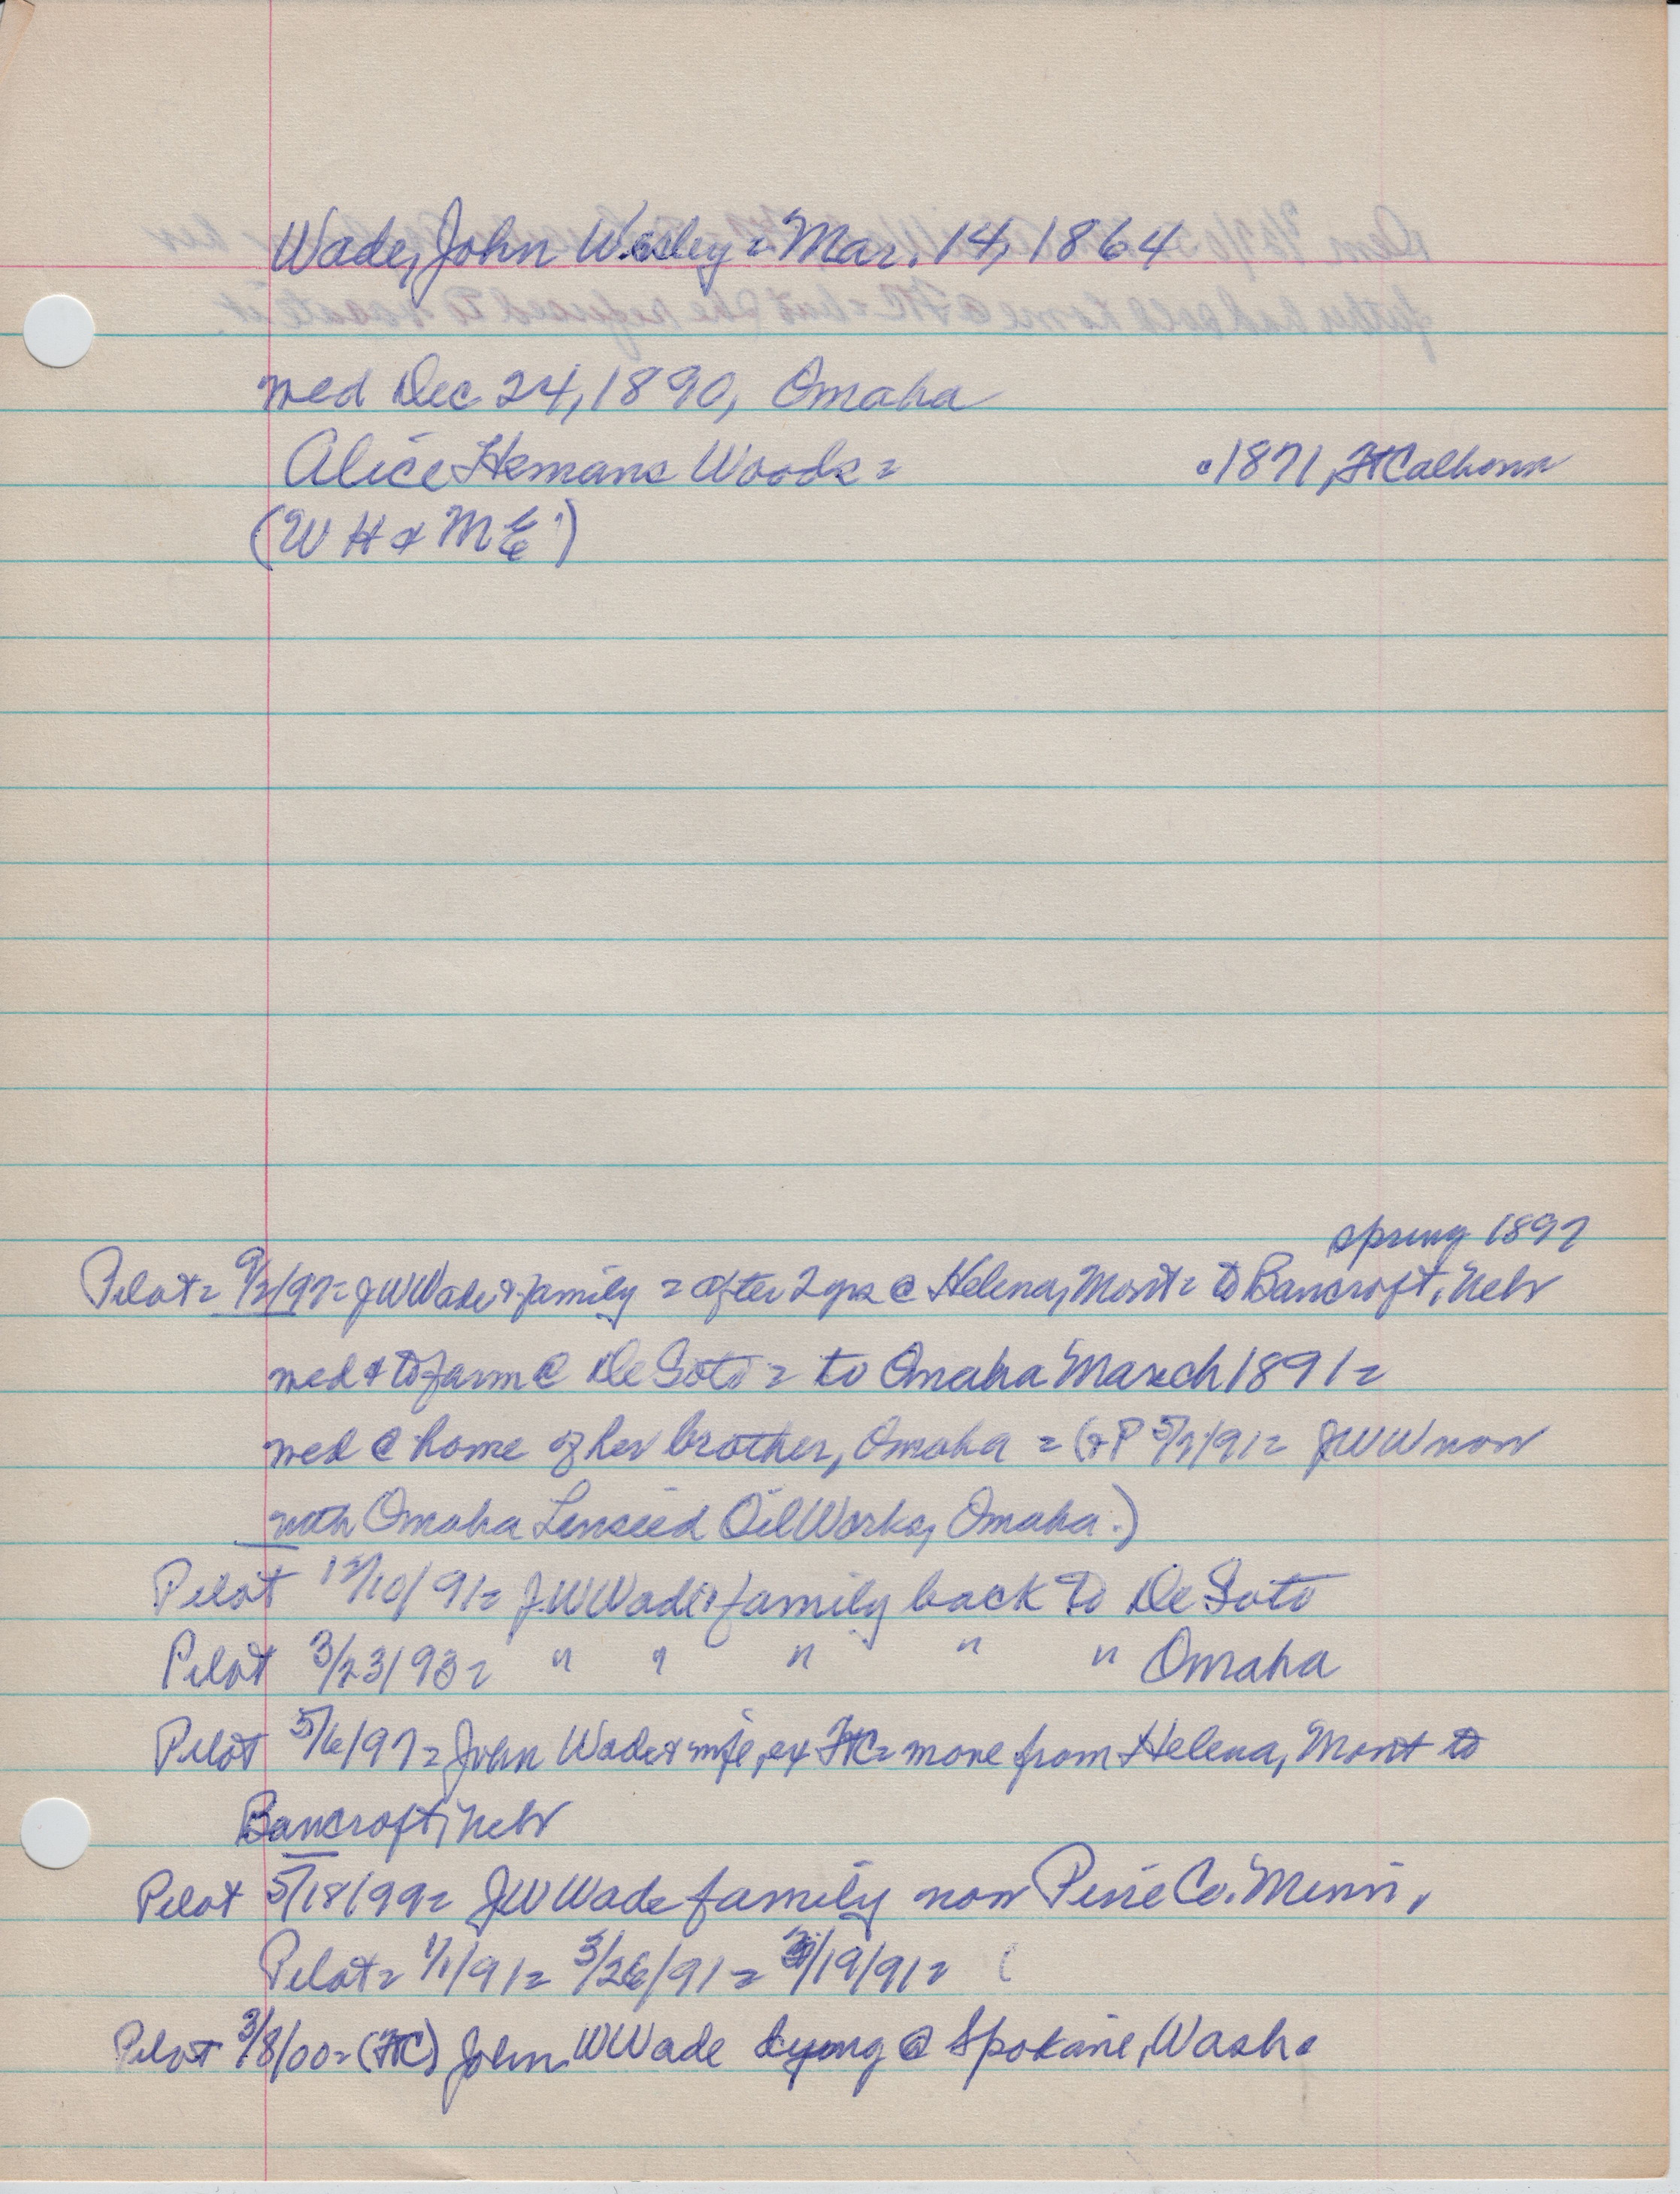 Wade, John Wesley = Mar. 14, 1864
wed Dec 24, 1890, Omaha
Alice Hemans Woods = 1871, Ft Calhoun
(W H & M E)
spring 1897
Pilot = 9/2/97 = JW Wade & family = after 2 yrs @ Helena, Mont = to Bancroft, Nebr
wed & to farm @ De Soto = to Omaha March 1891 =
wed @ home of her brother, Omaha = (& P 5/7/91 = JWW now
with Omaha Linseed Oil Works, Omaha.)
Pilot 12/10/91 = JW Wade & family back to De Soto
Pilot 3/23/93 = " " " " " Omaha
Pilot 5/6/97 = John Wade & wife, ex FtC = move from Helena, Mont to
Bancroft, Nebr
Pilot 5/18/99 = JW Wade family now Pine Co. Minn.
Pilot = 1/1/91 = 3/26/91 = /19/91 =
Pilot 3/8/00 = (FtC) John W Wade @ Spokane, Wash.